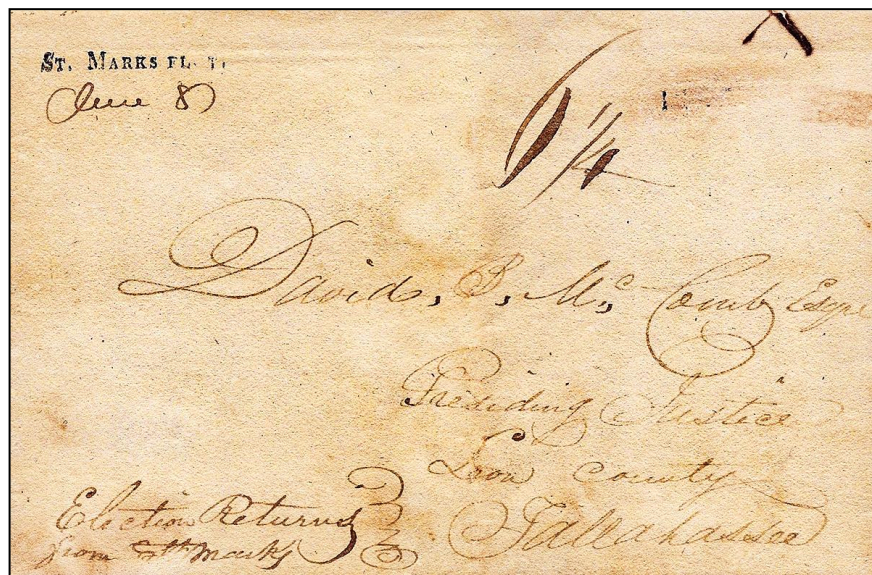 ST. MARKS FL. T.
June 8
6 1/4
David. B. Mc. Comb Esqre
Presiding Justice
Leon county
Tallahassee
Election Returns
from St. Marks